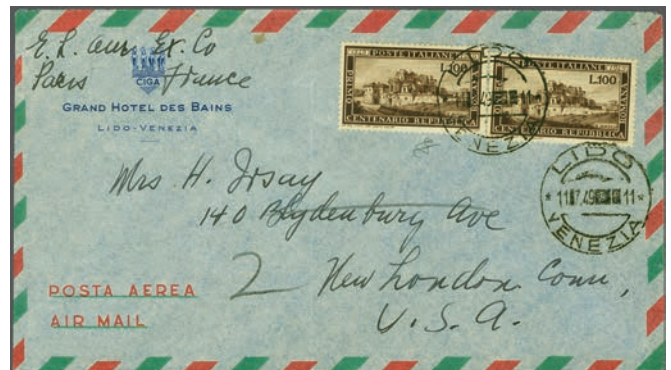 E. L. Am. Ex. Co
Paris France
CIGA
GRAND HOTEL DES BAINS
LIDO-VENEZIA
POSTE ITALIANE
L.100
PRIMO
ROMANA
CENTENARIO REPUBBLICA
POSTE ITALIANE
L.100
PRIMO
ROMANA
CENTENARIO REPUBBLICA
LIDO
49
11
VENEZIA
LIDO
* 11 7.49 11 *
VENEZIA
Mrs H.
140 Blydenburg Ave
2 New London Conn,
U.S.A.
POSTA AEREA
AIR MAIL